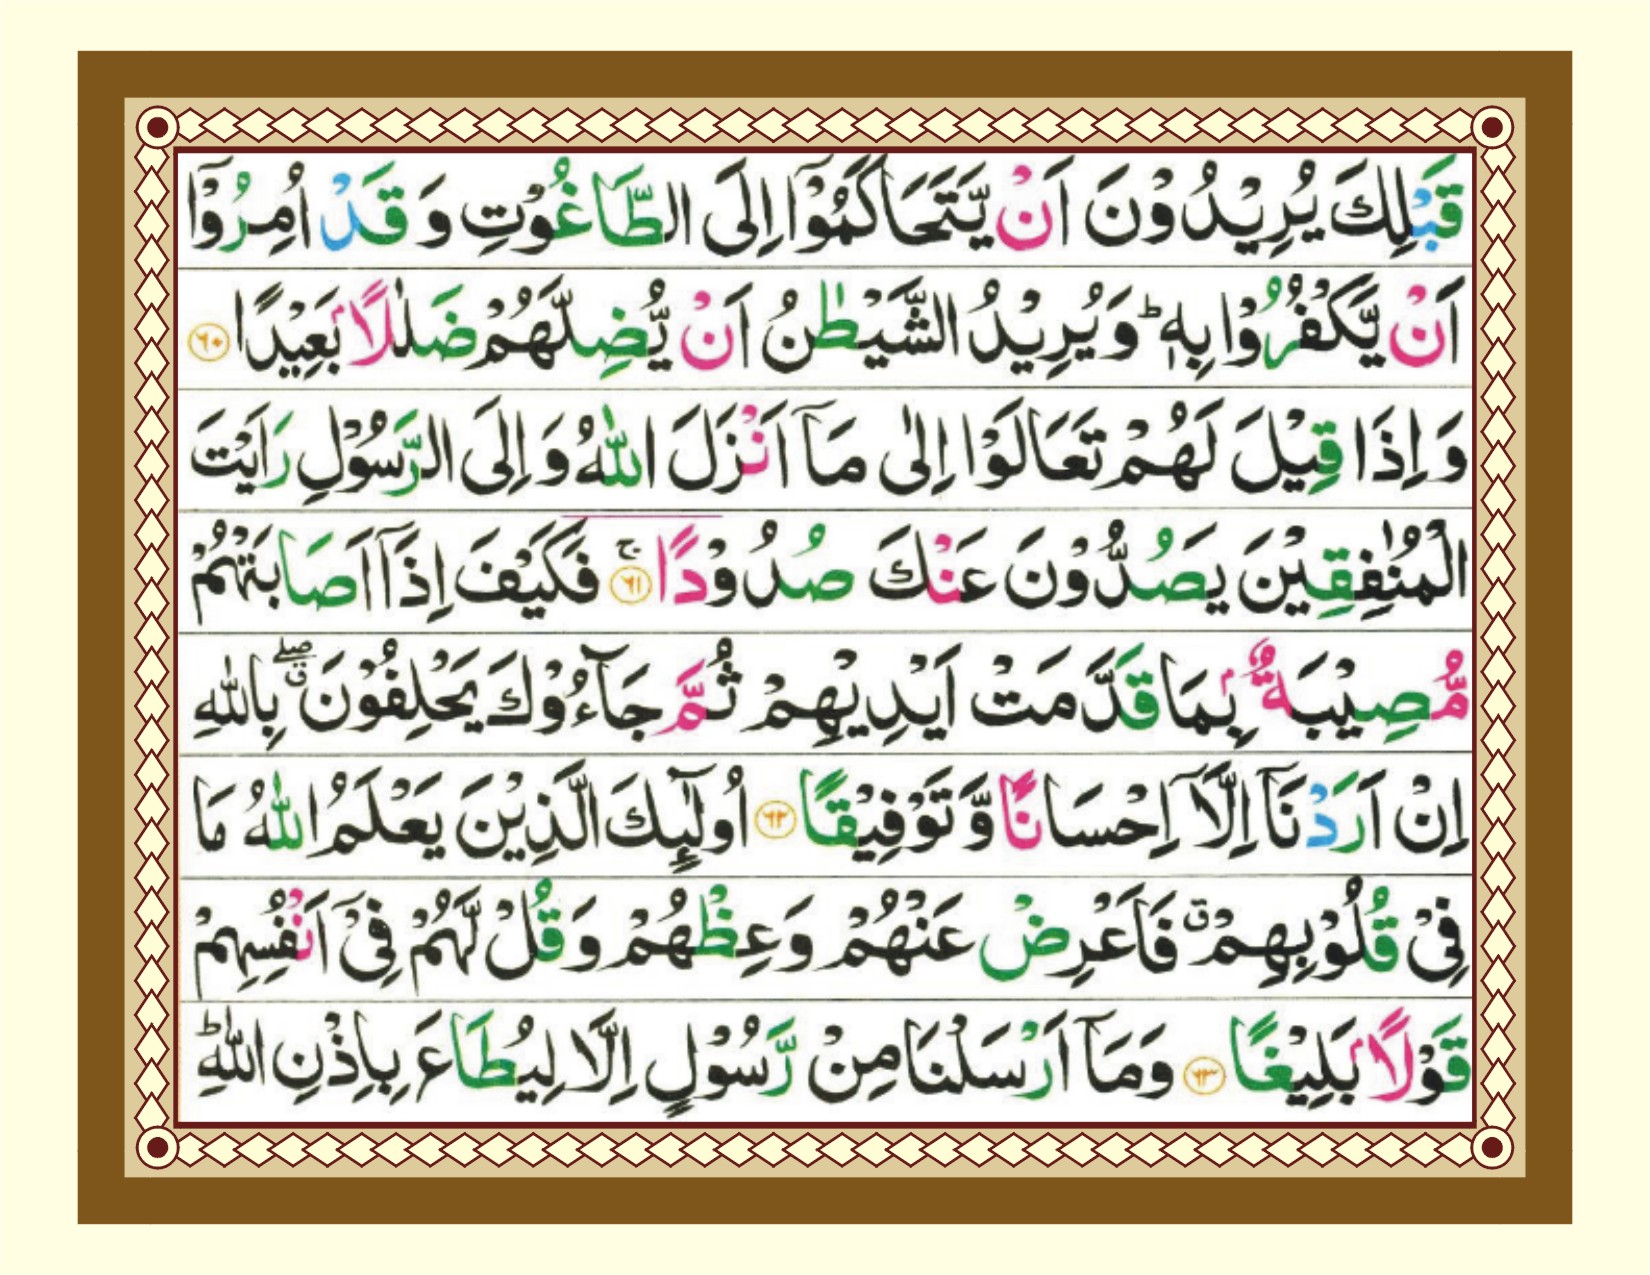 قَبْلِكَ يُرِيْدُوْنَ اَنْ يَّتَحَاكَمُوْۤا اِلَى الطَّاغُوْتِ وَ قَدْ اُمِرُوْۤا
اَنْ يَّكْفُرُوْا بِهٖ ؕ وَيُرِيْدُ الشَّيْطٰنُ اَنْ يُّضِلَّهُمْ ضَلٰلًاۢ بَعِيْدًا ﴿۶۰﴾
وَ اِذَا قِيْلَ لَهُمْ تَعَالَوْا اِلٰى مَاۤ اَنْزَلَ اللّٰهُ وَ اِلَى الرَّسُوْلِ رَاَيْتَ
الْمُنٰفِقِيْنَ يَصُدُّوْنَ عَنْكَ صُدُوْدًا ۚ ﴿۶۱﴾ فَكَيْفَ اِذَاۤ اَصَابَتْهُمْ
مُّصِيْبَةٌۢ بِمَا قَدَّمَتْ اَيْدِيْهِمْ ثُمَّ جَآءُوْكَ يَحْلِفُوْنَ ۖۗ بِاللّٰهِ
اِنْ اَرَدْنَاۤ اِلَّاۤ اِحْسَانًا وَّ تَوْفِيْقًا ﴿۶۲﴾ اُولٰٓئِكَ الَّذِيْنَ يَعْلَمُ اللّٰهُ مَا
فِيْ قُلُوْبِهِمْ ۗ فَاَعْرِضْ عَنْهُمْ وَعِظْهُمْ وَ قُلْ لَّهُمْ فِيْۤ اَنْفُسِهِمْ
قَوْلًاۢ بَلِيْغًا ﴿۶۳﴾ وَمَاۤ اَرْسَلْنَا مِنْ رَّسُوْلٍ اِلَّا لِيُطَاعَ بِاِذْنِ اللّٰهِ ؕ